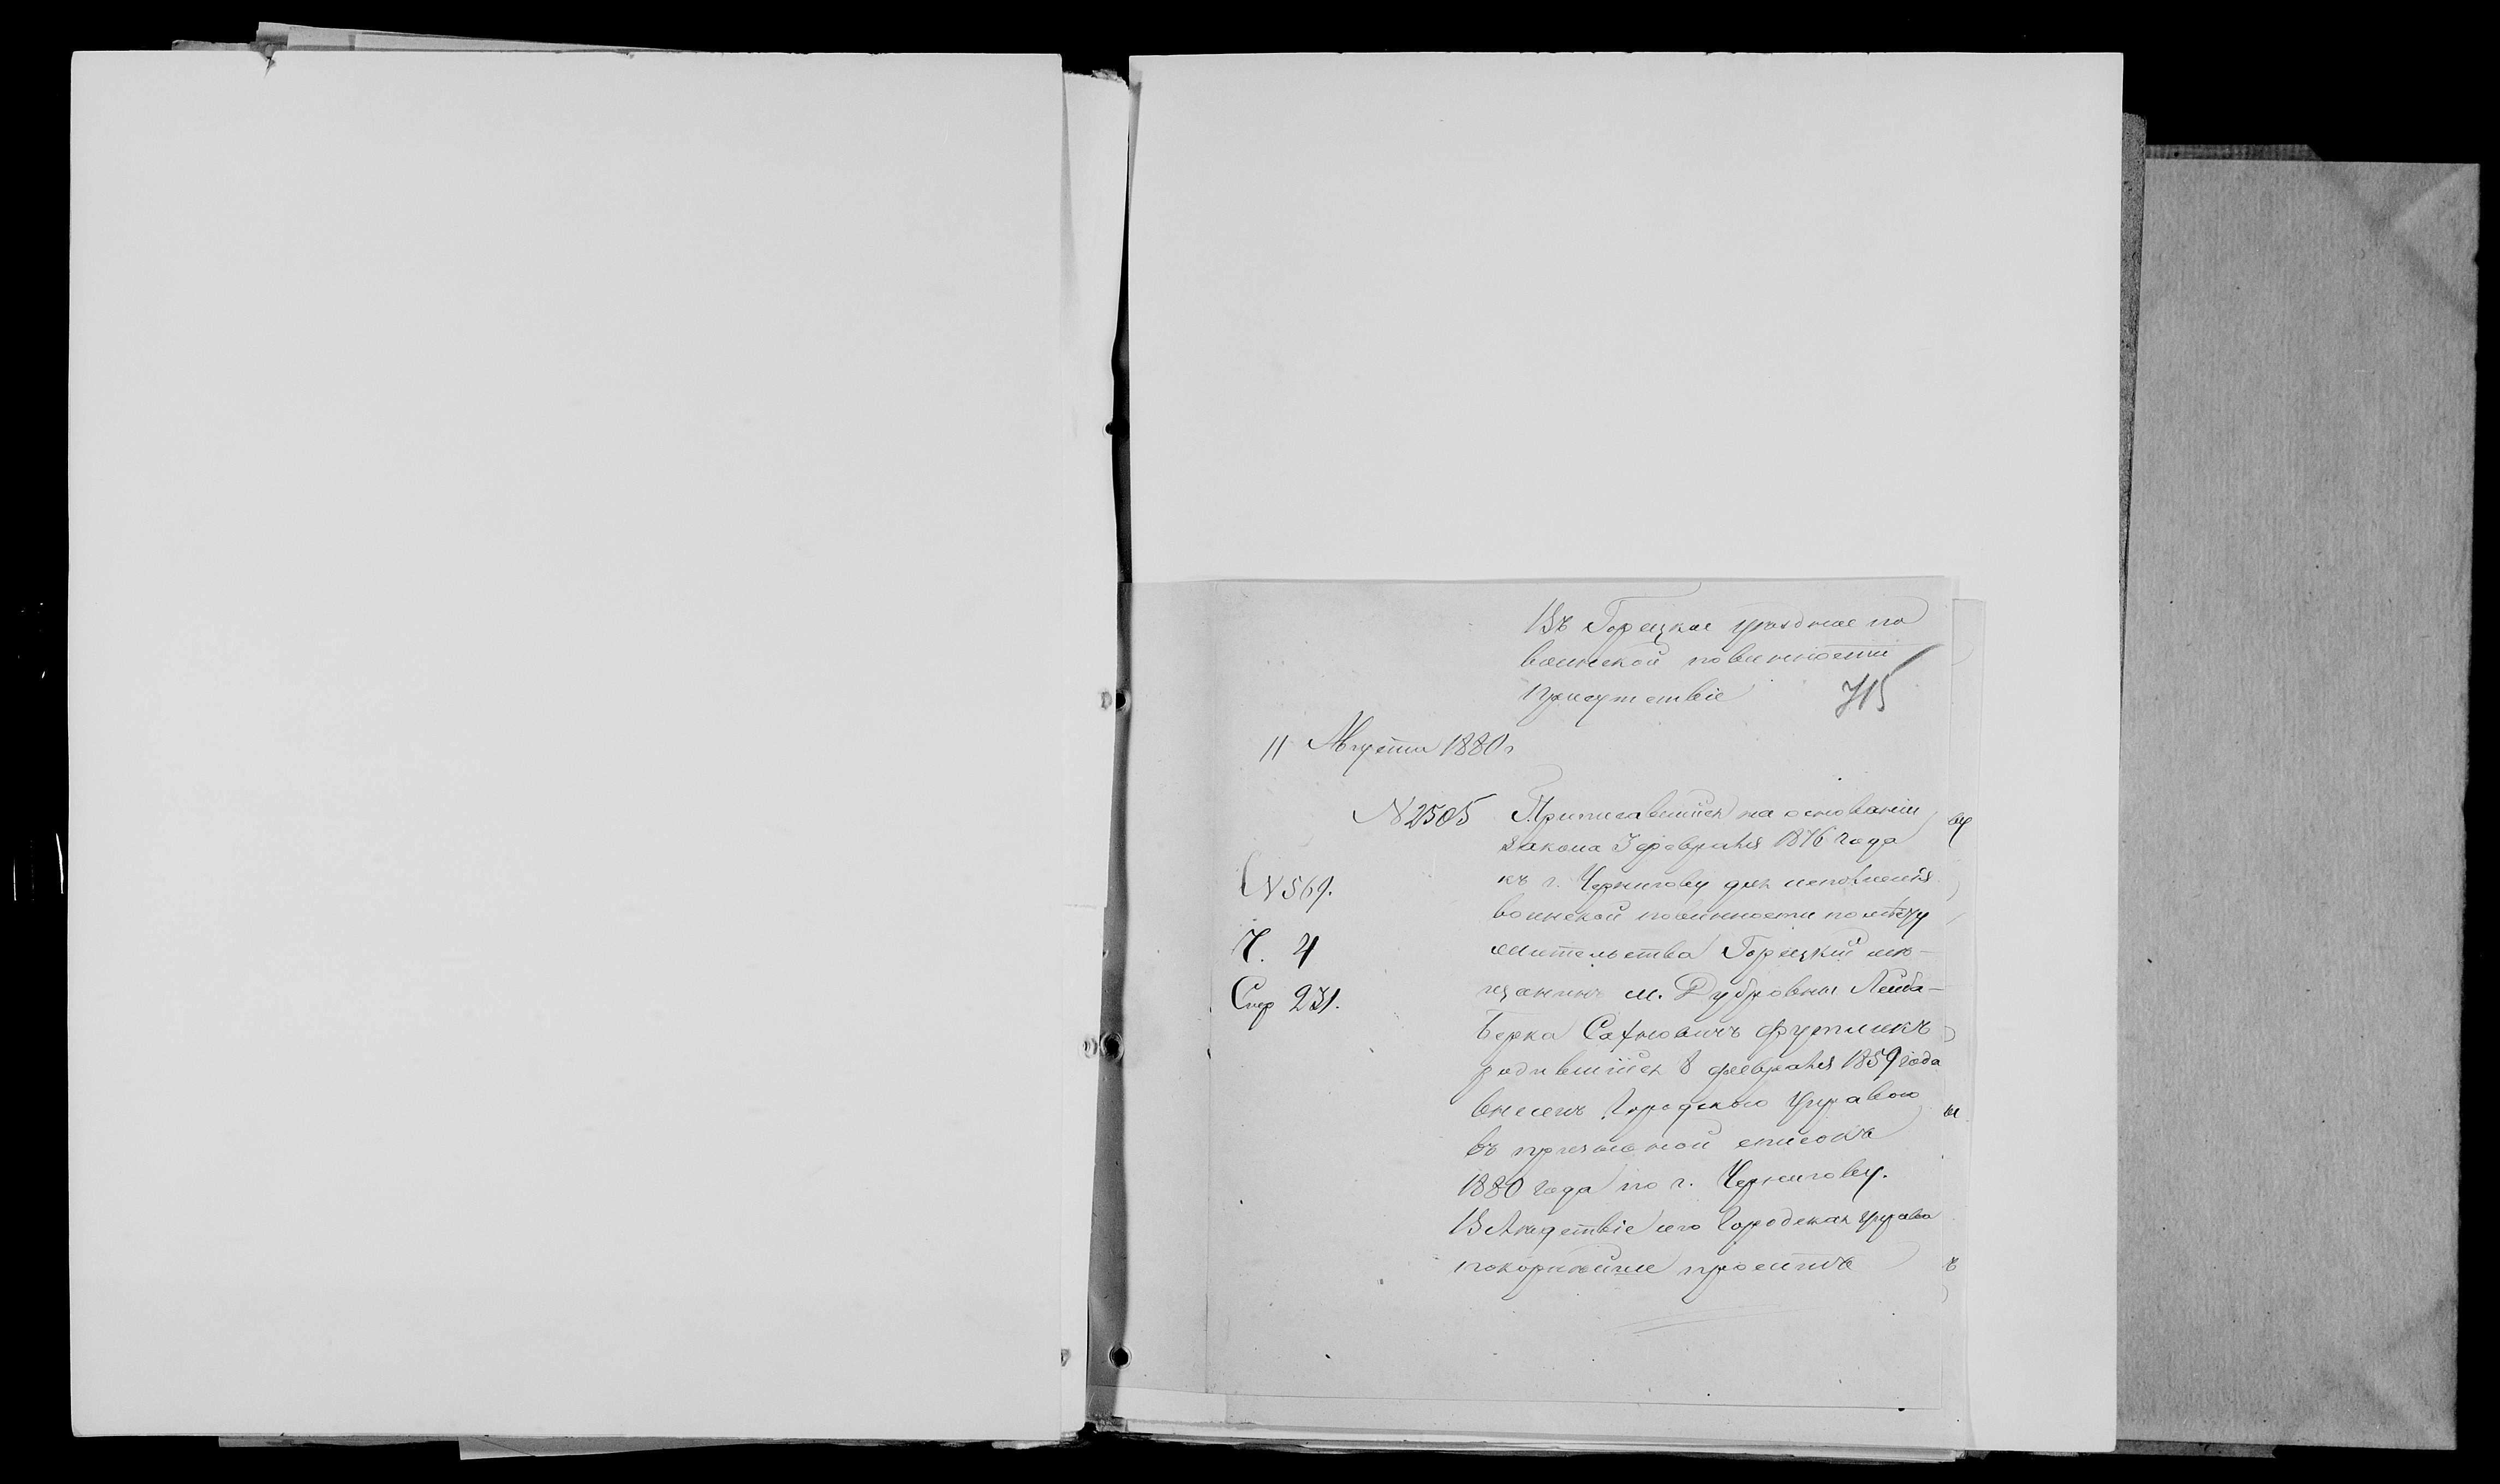 Въ Горецкое уѣздное по
воинской повинности
присутствіе
715
11 Августа 1880 г
N 2505
Приписавшійся на основаніи
закона 3 февраля 1876 года
къ г. Чернигову для исполненія
воинской повинности по мѣсту
жительства Горецкій мѣ-
щанинъ м. Дубровны Лейба-
Берка Сахновичъ Футликъ
родившійся 8 февраля 1859 года
внесенъ Городскою Управою
въ призывной списокъ
1880 года по г. Чернигову.
Вслѣдствіе сего Городская Управа
покорнѣйше проситъ
N 569.
Ч. 4
Стр 231.